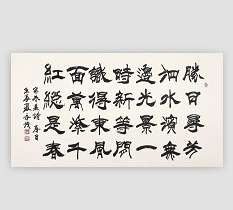 勝日尋芳
泗水濱無
邊光景一
時新等閒
識得東風
面萬紫千
紅總是春
宋朱熹詩 春日